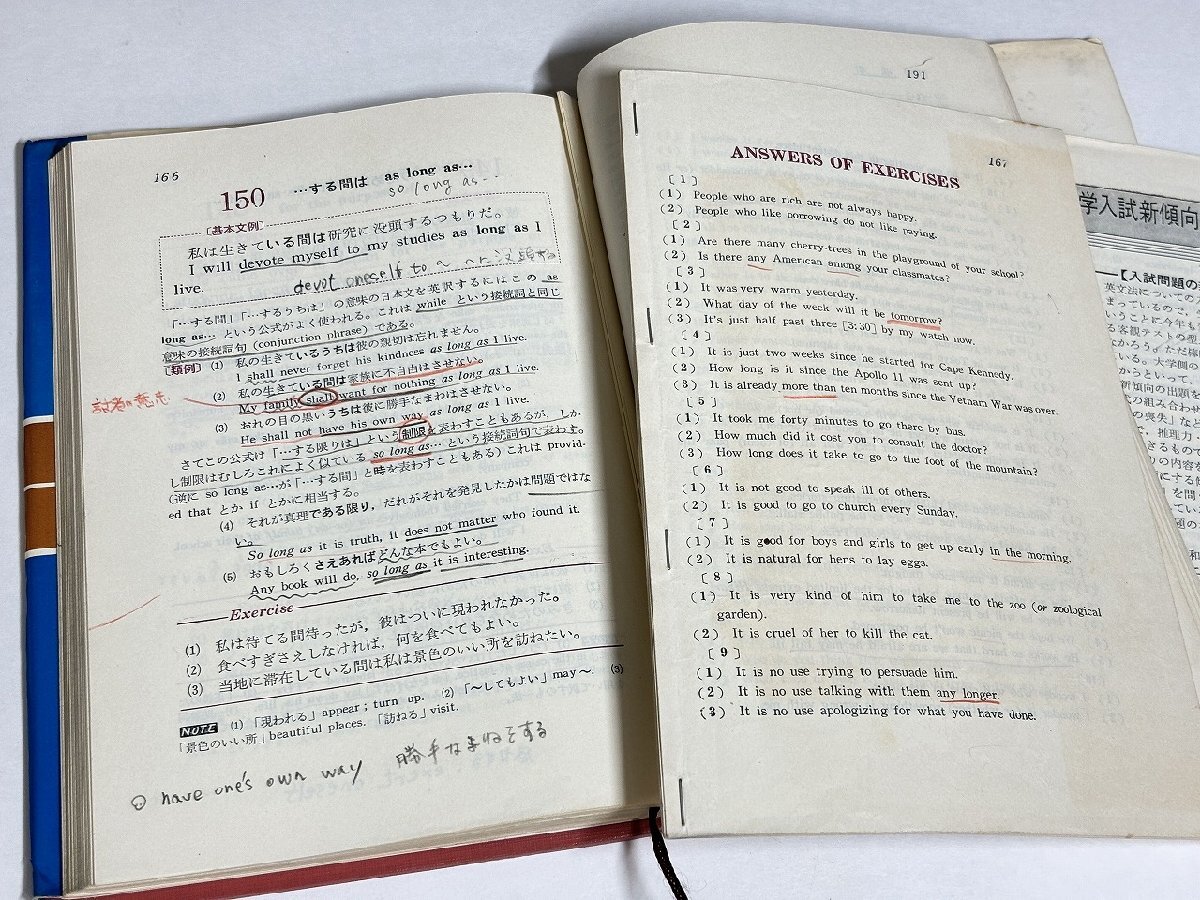 165
150 …する間は as long as…
so long as…
[基本文例]
私は生きている間は研究に没頭するつもりだ。
I will devote myself to my studies as long as I
live.
devot oneself to ~ ~に没頭する
「…する間」「…するうちは」の意味の日本文を英訳するにはこの as
long as… という公式がよく使われる。これは while という接続詞と同じ
意味の接続詞句 (conjunction phrase) である。
[類例] (1) 私の生きているうちは彼の親切は忘れません。
I shall never forget his kindness as long as I live.
(2) 私の生きている間は家族に不自由はさせない。
My family shall want for nothing as long as I live.
(3) おれの目の黒いうちは彼に勝手なまねはさせない。
He shall not have his own way as long as I live.
さてこの公式は「…する限りは」という制限を表わすこともあるが,しか
し制限はむしろこれによく似ている so long as… という接続詞句で表わす。
(逆に so long as…が「…する間」と時を表わすこともある) これは provid-
ed that とか if とかに相当する。
(4) それが真理である限り,だれがそれを発見したかは問題ではな
い。
So long as it is truth, it does not matter who found it.
(5) おもしろくさえあればどんな本でもよい。
Any book will do, so long as it is interesting.
Exercise
(1) 私は待てる間待ったが,彼はついに現われなかった。
(2) 食べすぎさえしなければ,何を食べてもよい。
(3) 当地に滞在している間は私は景色のいい所を訪ねたい。
NOTE (1)「現われる」appear; turn up. (2)「〜してもよい」may〜. (3)
「景色のいい所」beautiful places. 「訪ねる」visit.
have one's own way 勝手なまねをする
話者の意志
191
167
ANSWERS OF EXERCISES
[1]
(1) People who are rich are not always happy.
(2) People who like borrowing do not like paying.
[2]
(1) Are there many cherry-trees in the playground of your school?
(2) Is there any American among your classmates?
[3]
(1) It was very warm yesterday.
(2) What day of the week will it be tomorrow?
(3) It's just half past three [3:30] by my watch now.
[4]
(1) It is just two weeks since he started for Cape Kennedy.
(2) How long is it since the Apollo 11 was sent up?
(3) It is already more than ten months since the Yetnam War was over.
[5]
(1) It took me forty minutes to go there by bus.
(2) How much did it cost you to consult the doctor?
(3) How long does it take to go to the foot of the mountain?
[6]
(1) It is not good to speak ill of others.
(2) It is good to go to church every Sunday.
[7]
(1) It is good for boys and girls to get up early in the morning.
(2) It is natural for hens to lay eggs.
[8]
(1) It is very kind of him to take me to the zoo (or zoological
garden).
(2) It is cruel of her to kill the cat.
[9]
(1) It is no use trying to persuade him.
(2) It is no use talking with them any longer.
(3) It is no use apologizing for what you have done.
学入試新傾向
【入試問題の
英文法についての